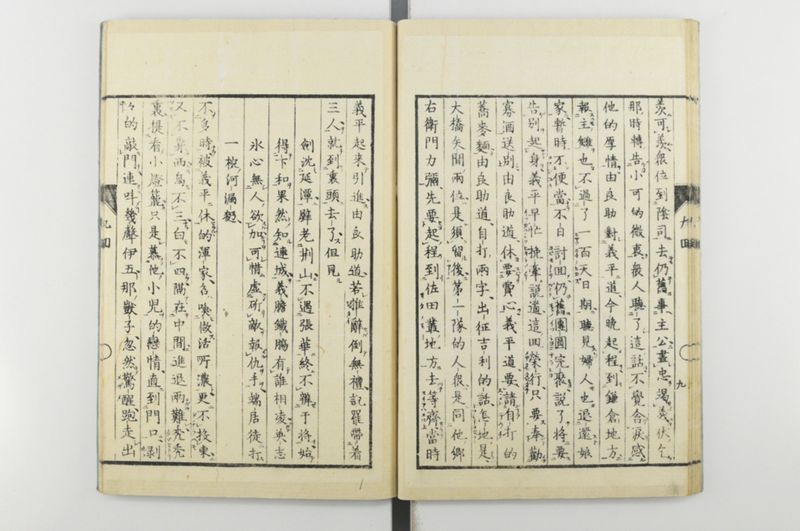 羨可羨很位到陰司去仍舊事主公盡忠竭義伏乞
那時轉告小可的微衷衆人聽了這話不覺含淚感
他的厚情由良助對義平道今晚起程到鎌倉地方
報主讎也不過了一百天日期聽見婦人也退還娘
家暫時不便當不日討回仍舊團圓完聚說了將要
告別起身義平早忙挽牽說道這回榮行只要奉勸
寡酒送別由良助道休要費心義平道要請自打的
蕎麥麵由良助道自打兩字出征吉利的話怎地是
大橋矢間兩位是須留後第二隊的人很是同他鄉
右衛門力彌先要起程到佐田叢地方去等齊當時
義平起來引進由良助道若推辭倒無禮記羅帶着
三人就到裏頭去了但見
劍沈延潭壁老荆山不遇張華終不辨于將始
得卞和果然知連城義膽鐵腸有誰相凌典志
氷心無人欲加可惜虛
敵報仇手端居徒打
一
河漏麪
不多時被義平休的渾家名喚做活
濃更不投東
又不
西
不三
不四隅在中間進退兩難禿禿
裏提着小燈籠只是慕他小兒的戀情直到門口剥
々的敲門連呌幾聲伊五那獃子忽然驚醒跑走出
九回
九